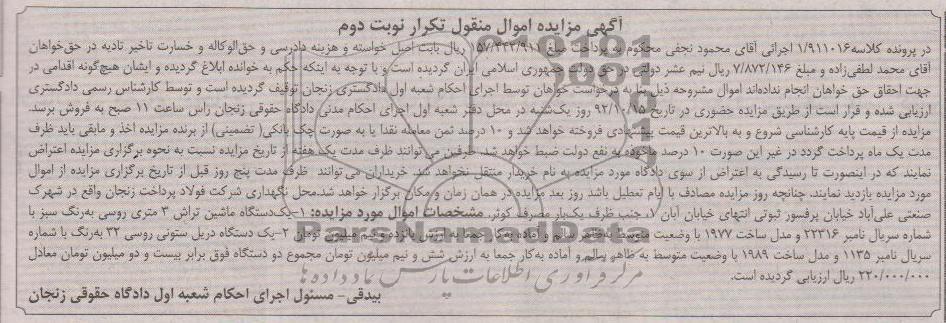 آگهی مزایده اموال منقول تکرار نوبت دوم
در پرونده کلاسه ۱/۹۱۱۰۱۶ اجرائی آقای محمود نجفی محکوم به پرداخت مبلغ ریال بابت اصل خواسته و هزینه دادرسی و حق‌الوکاله و خسارت تاخیر تادیه در حق‌خواهان
آقای محمد لطفی‌زاده و مبلغ ۷/۸۷۲/۱۴۶ ریال نیم عشر دولتی در حق دولت جمهوری اسلامی ایران گردیده است و با توجه به اینکه حکم به خوانده ابلاغ گردیده و ایشان هیچ‌گونه اقدامی در
جهت احقاق حق خواهان انجام نداده‌اند اموال مشروحه ذیل بنا به درخواست خواهان توسط اجرای احکام شعبه اول دادگستری زنجان توقیف گردیده است و توسط کارشناس رسمی دادگستری
ارزیابی شده و قرار است از طریق مزایده حضوری در تاریخ ۹۲/۱۰/۱۵ روز یک‌شنبه در محل دفتر شعبه اول اجرای احکام مدنی دادگاه حقوقی زنجان راس ساعت ۱۱ صبح به فروش برسد.
مزایده از قیمت پایه کارشناسی شروع و به بالاترین قیمت پیشنهادی فروخته خواهد شد و ۱۰ درصد ثمن معامله نقدا یا به صورت چک بانکی( تضمینی) از برنده مزایده اخذ و مابقی باید ظرف
مدت یک ماه پرداخت گردد در غیر این صورت ۱۰ درصد ماخوذه به نفع دولت ضبط خواهد شد. طرفین می‌توانند ظرف مدت یک هفته از تاریخ مزایده نسبت به نحوه برگزاری مزایده اعتراض
نمایند که در اینصورت تا رسیدگی به اعتراض از سوی دادگاه مورد مزایده به نام خریدار منتقل نخواهد شد. خریداران می‌توانند ظرف مدت پنج روز قبل از تاریخ برگزاری مزایده از اموال
مورد مزایده بازدید نمایند. چنانچه روز مزایده مصادف با ایام تعطیل باشد روز بعد مزایده در همان زمان و مکان برگزار خواهد شد.محل نگهداری شرکت فولاد پرداخت زنجان واقع در شهرک
صنعتی علی‌آباد خیابان پرفسور ثبوتی انتهای خیابان آبان ۷، جنب ظرف یک‌بار مصرف کوثر. مشخصات اموال مورد مزایده: ۱-یک‌دستگاه ماشین تراش ۳ متری روسی به‌رنگ سبز با
شماره سریال نامبر ۲۲۳۱۶ و مدل ساخت ۱۹۷۷ با وضعیت متوسط به ظاهر سالم و آماده به‌کار جمعا به ارزش پانزده و نیم میلیون تومان ۲-یک دستگاه دریل ستونی روسی ۳۲ به‌رنگ با شماره
سریال نامبر ۱۱۳۵ و مدل ساخت ۱۹۸۹ با وضعیت متوسط به ظاهر سالم و آماده به‌کار جمعا به ارزش شش و نیم میلیون تومان مجموع دو دستگاه فوق برابر بیست و دو میلیون تومان معادل
۲۲۰/۰۰۰/۰۰۰ ریال ارزیابی گردیده است.
بیدقی- مسئول اجرای احکام شعبه اول دادگاه حقوقی زنجان
ParsNamadData
مرکز فرآوری اطلاعات پارس نماد داده ها